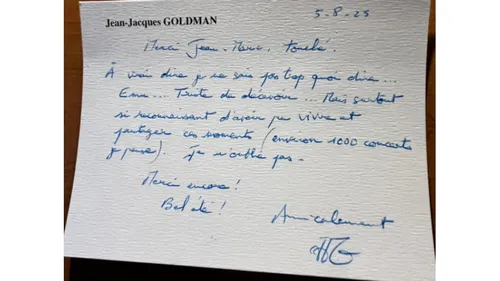 Jean-Jacques GOLDMAN
5-8-25
Merci Jean-Marc, touché.
À vrai dire je ne sais pas trop quoi dire...
Emu... Triste de décevoir... Mais surtout
si reconnaissant d'avoir pu vivre et
partager ces moments (environ 1000 concerts
je pense). Je n'oublie pas.
Merci encore!
Bel été!
Amicalement